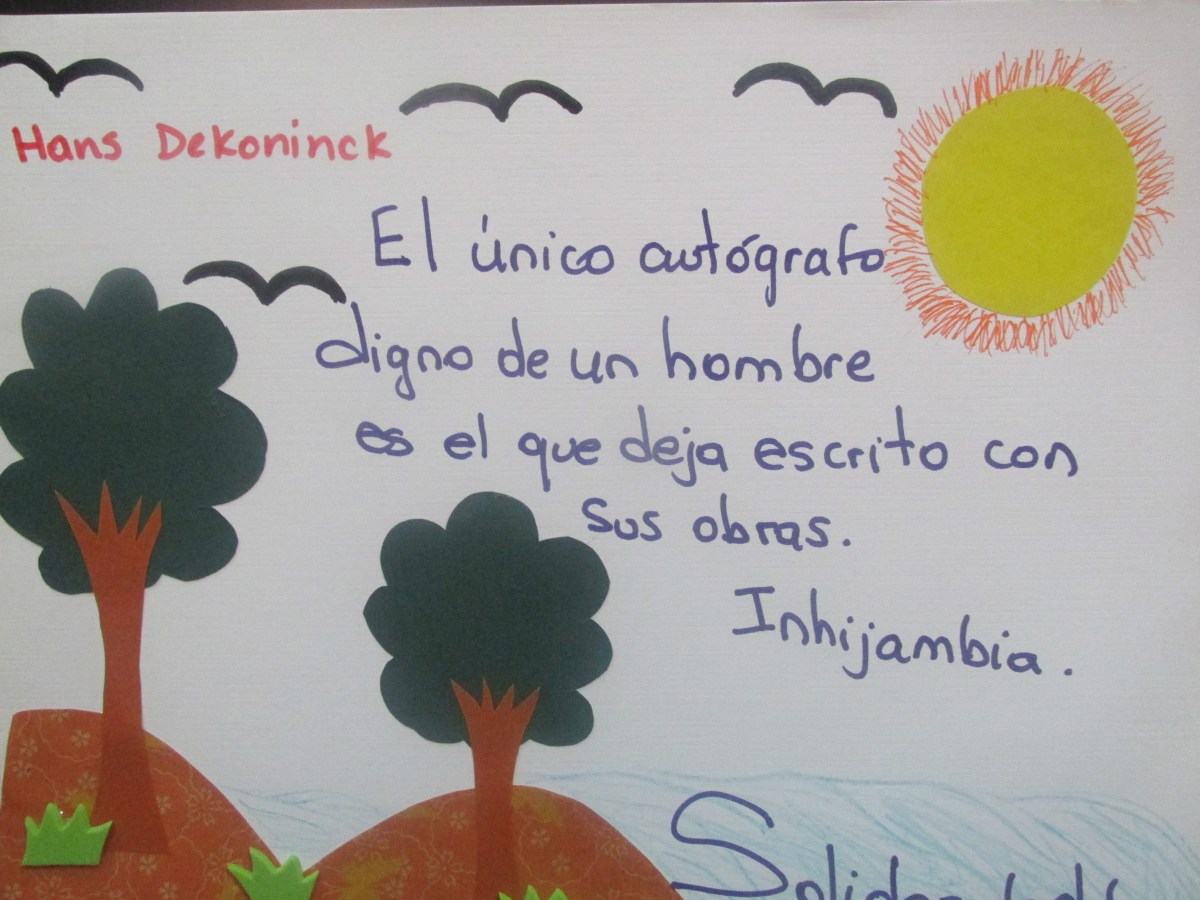 Hans Dekoninck
El único autógrafo
digno de un hombre
es el que deja escrito con
sus obras.
Inhijambia.